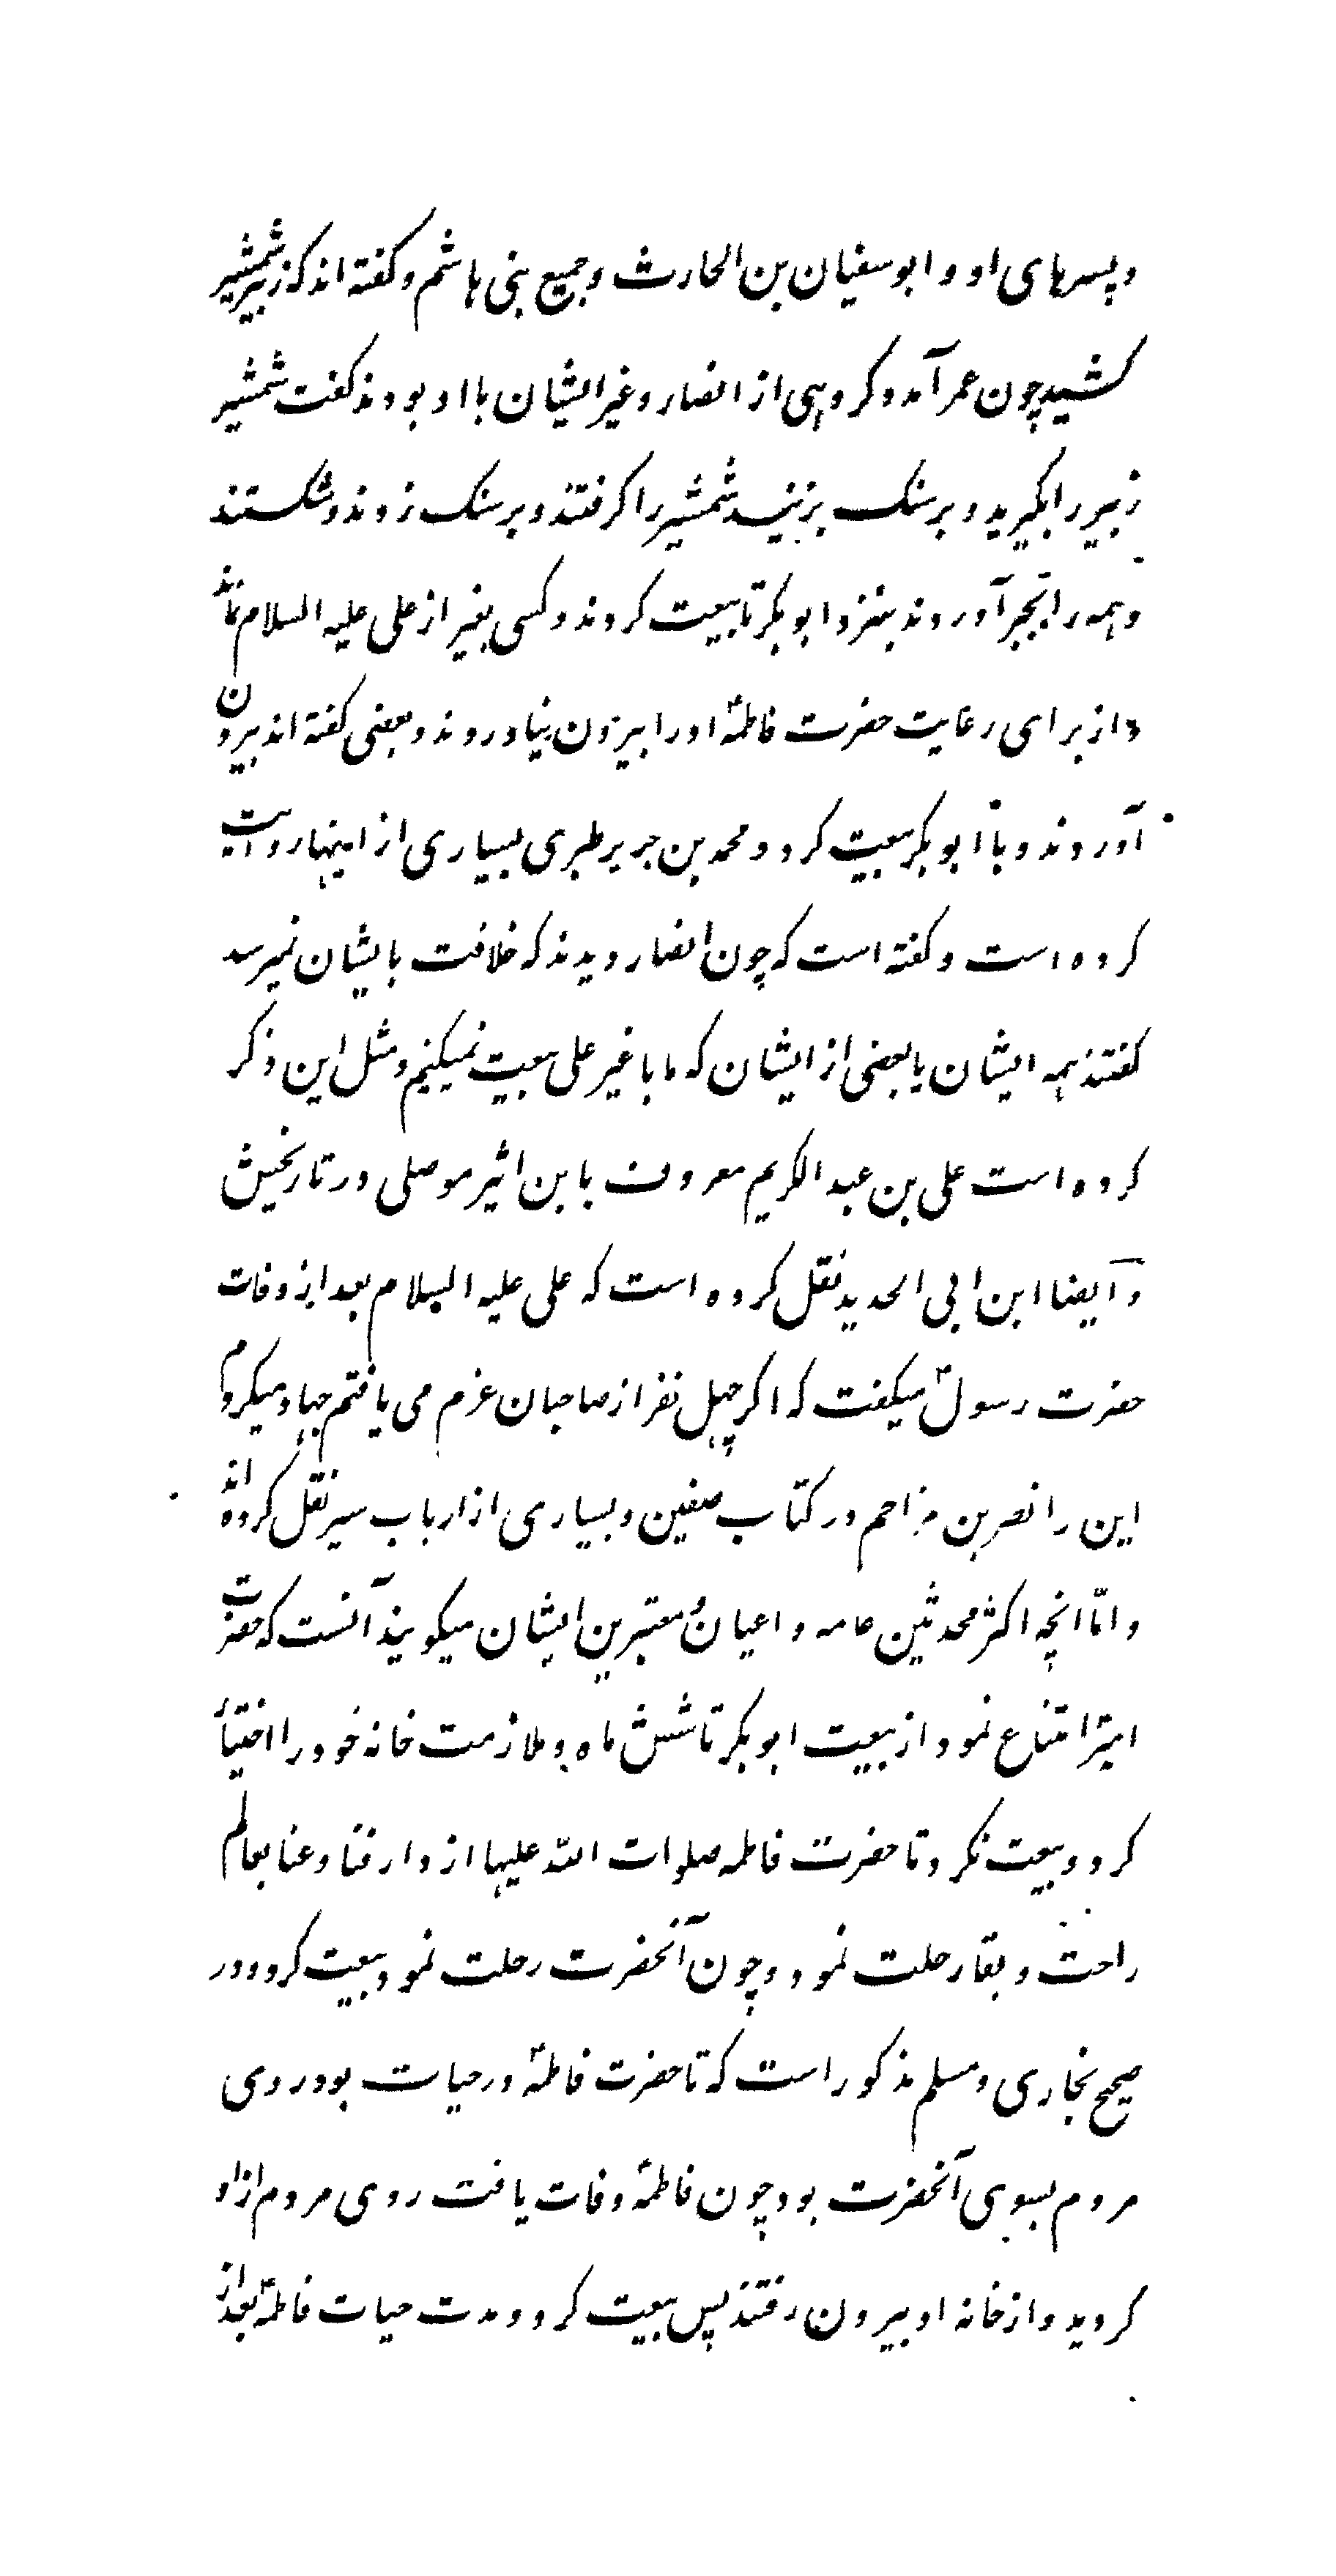 وپسرهای او و ابوسفیان بن الحارث وجمیع بنی هاشم وکفته اندکه زبیر شمشیر
کشید چون عمر آمد وکروهی از انصار وغیر ایشان با او بودند کفت شمشیر
زبیر را بکیرید و بر سنک بزنید شمشیر را کرفتند و بر سنک زدند وشکستند
وهمه را بجبر آوردند بنزد ابو بکر تا بیعت کردند وکسی بغیر از علی علیه السلام نماند
واز برای رعایت حضرت فاطمهٔ اورا بیرون نیاوردند وبعضی کفته اند بیرون
آوردند وبا ابو بکر بیعت کرد ومحمد بن جریر طبری بسیاری از اینها روایت
کرده است وکفته است که چون انصار دیدند که خلافت بایشان نمیرسد
کفتند همه ایشان یا بعضی از ایشان که ما با غیر علی بیعت نمیکنیم ومثل این ذکر
کرده است علی بن عبد الکریم معروف بابن اثیر موصلی در تاریخش
وآیضا ابن ابی الحدید نقل کرده است که علی علیه السلام بعد از وفات
حضرت رسولؐ میکفت که اکر چهل نفر از صاحبان عزم می یافتم جهاد میکردم
این را نصر بن مزاحم در کتاب صفین وبسیاری از ارباب سیر نقل کرده اند
وامّا انچه اکثر محدثین عامه و اعیان معتبرین ایشان میکویند آنست که حضرت
امیر امتناع نمود از بیعت ابو بکر تا شش ماه و ملازمت خانه خود را اختیار
کرد وبیعت نکرد تا حضرت فاطمه صلوات اللّه علیها از دار فنا وعنا بعالم
راحت وبقا رحلت نمود وچون آنحضرت رحلت نمود بیعت کرد ودر
صحیح بخاری ومسلم مذکور است که تا حضرت فاطمهٔ در حیات بود روی
مردم بسوی آنحضرت بود چون فاطمهٔ وفات یافت روی مردم از او
کردید واز خانه او بیرون رفتند پس بیعت کرد ومدت حیات فاطمهٔ بعد از